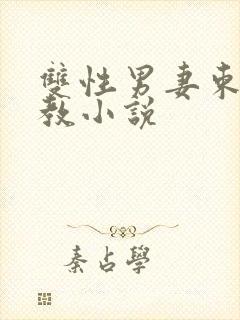 雙性男妻束
教小說
秦占學